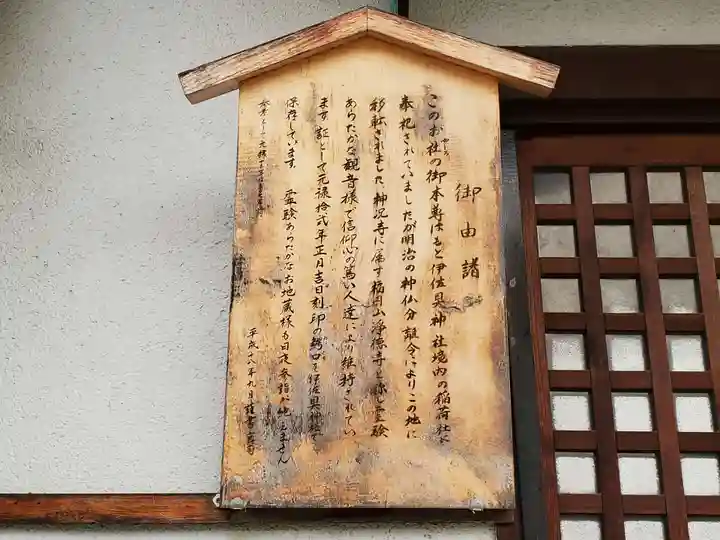 御由諸
このお社の御本尊はもと伊佐具神社境内の稲荷社に
やしろ
奉祀されていましたが明治の神仏分離令によりこの地に
移転されました 神呪寺に属す稲荷山浄徳寺と称し霊験
あらたかな観音様で信仰心の篤い人達により維持されてい
ます 証として元禄拾弐年正月吉日刻印の鰐口を伊佐具神社で
保存しています 霊験あらたかなお地蔵様も日夜参詣が絶えません
参考として元禄
平成十八年九月